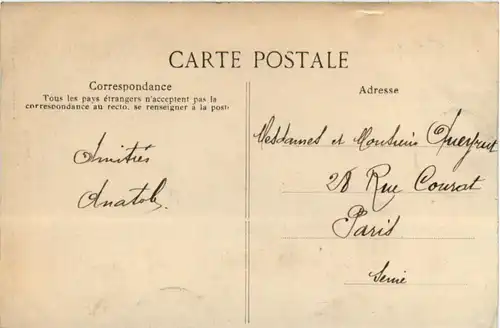 CARTE POSTALE
Correspondance
Tous les pays étrangers n'acceptent pas la
correspondance au recto, se renseigner à la poste
Amitiés
Anatole.
Adresse
Mesdames et Monsieur
28 Rue Courat
Paris
Seine